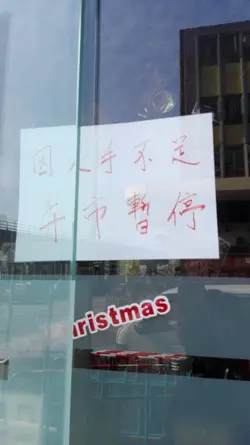 因人手不足
午市暫停
christmas